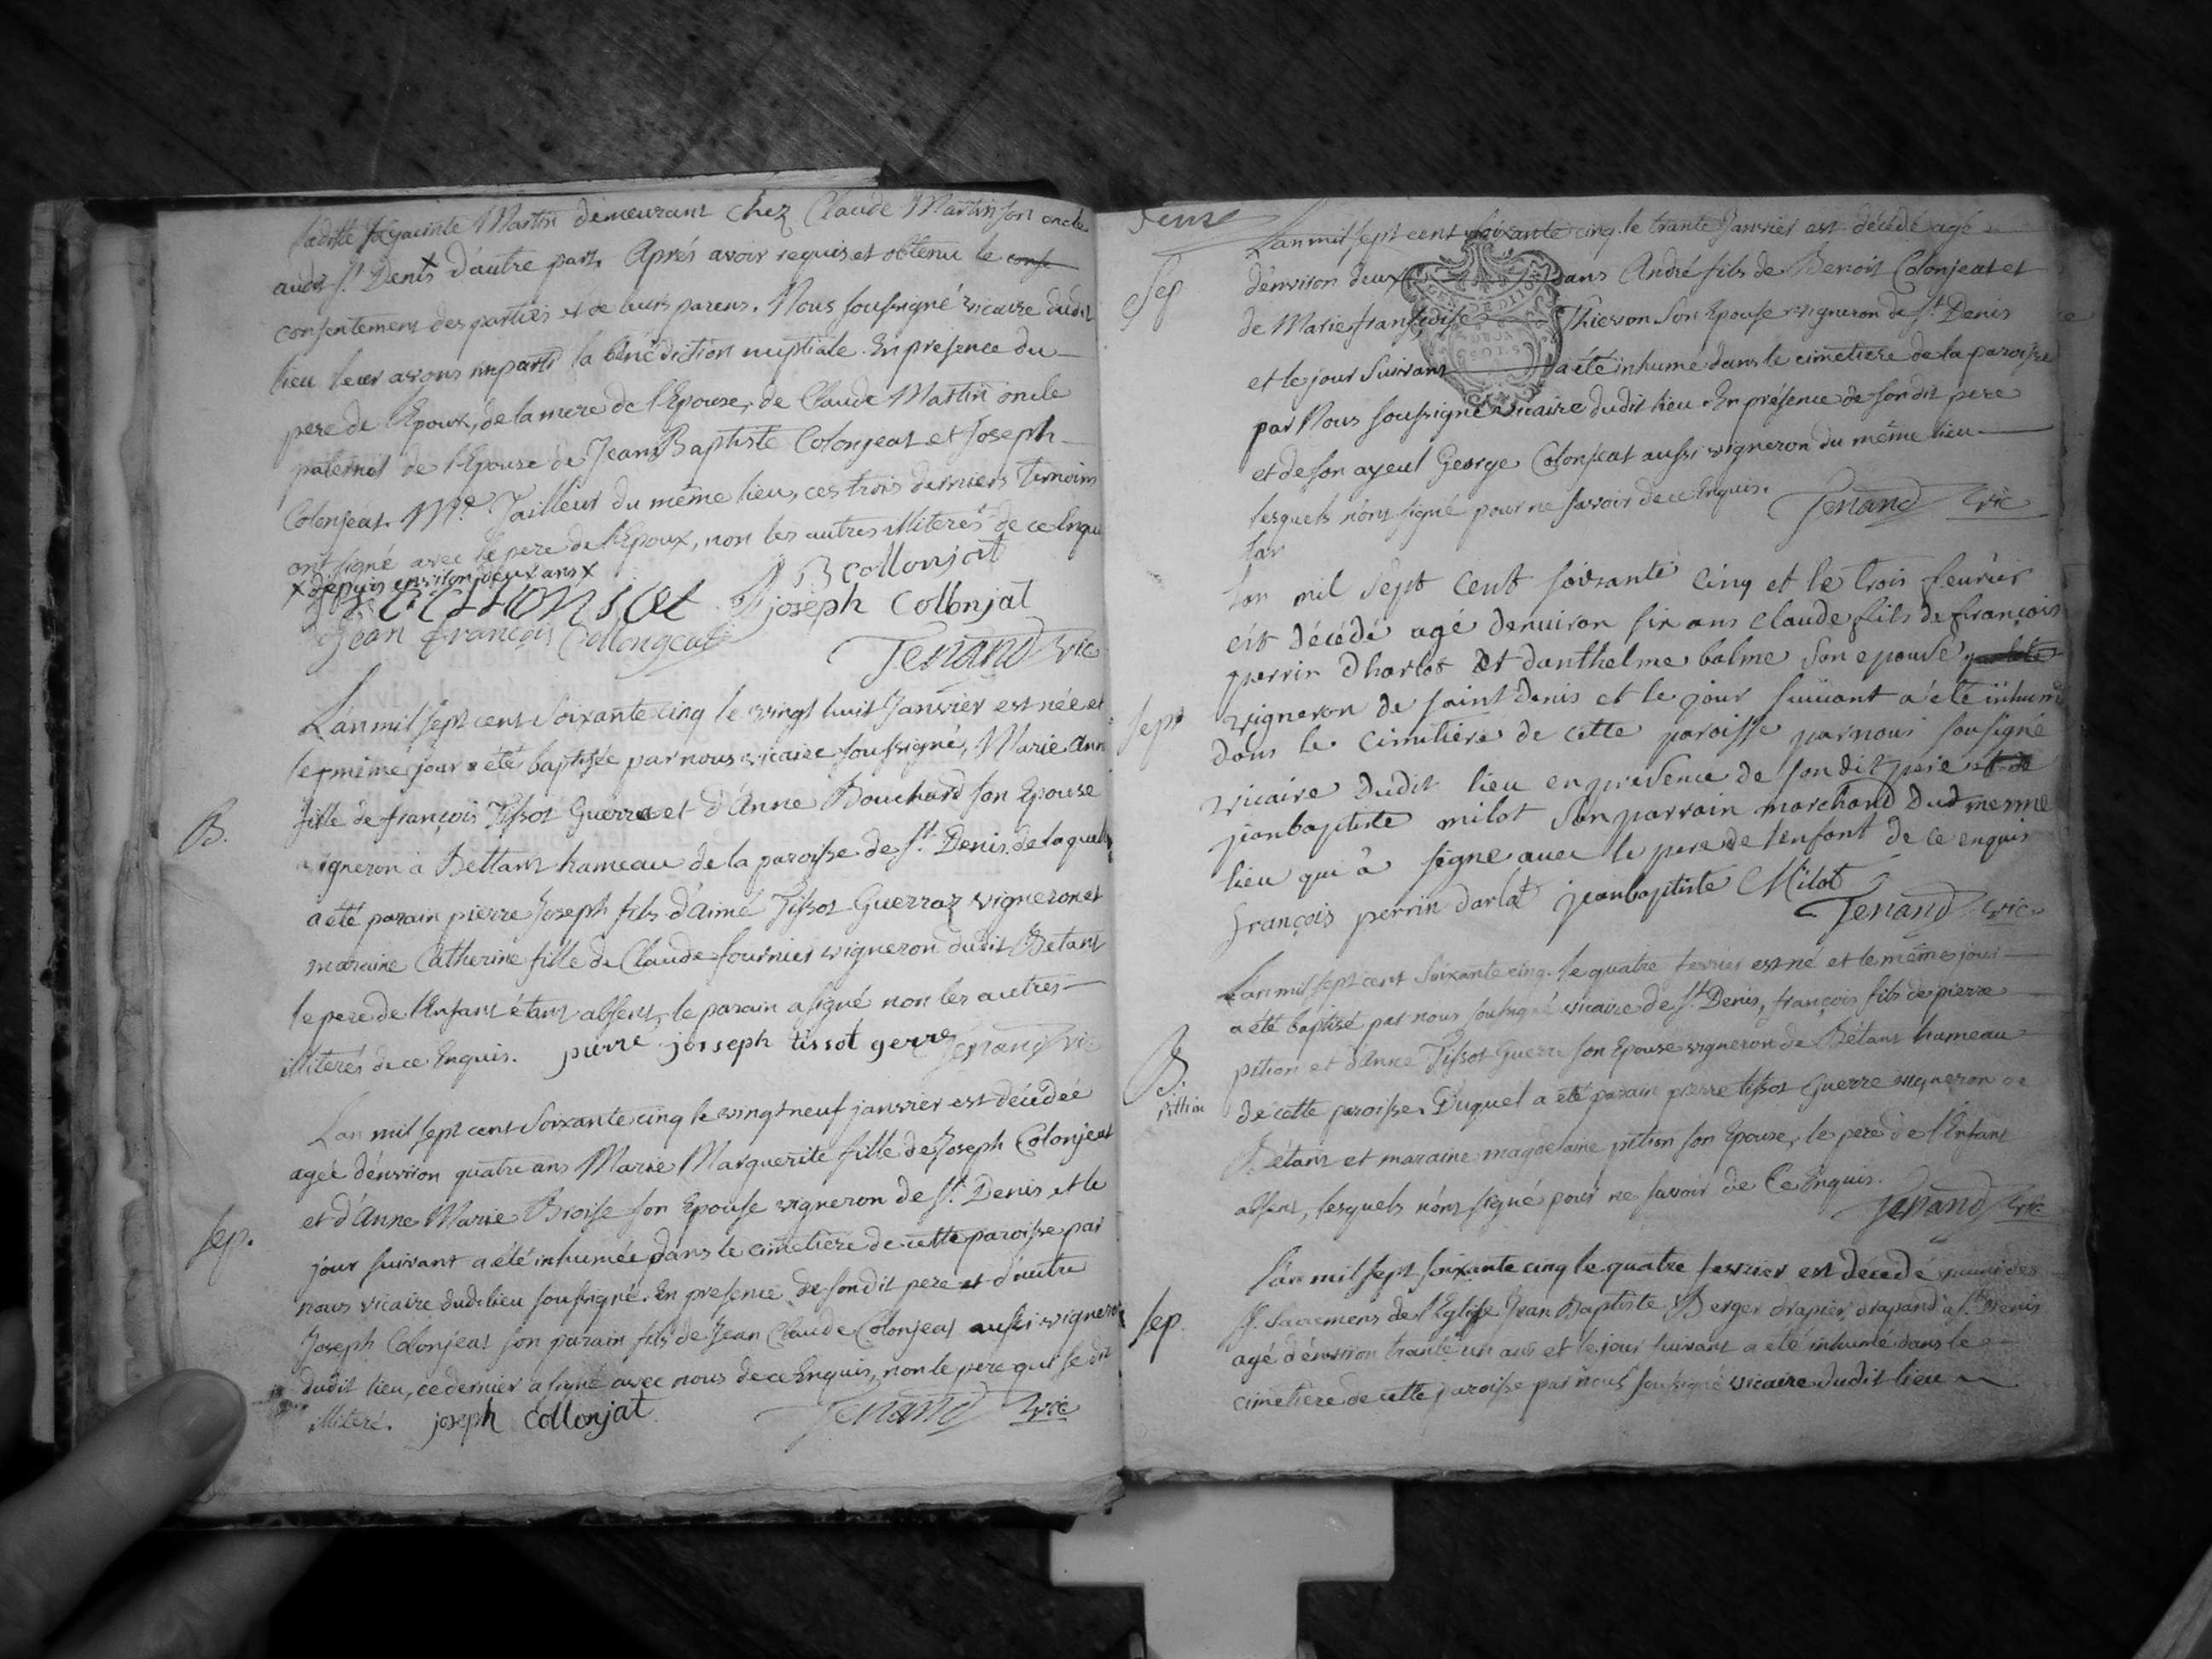 ladite hyacinte Martin demeurant chez Claude Martin son oncle
audit St. Denis x d'autre part. Aprés avoir requis et obtenu le conse
consentement des parties et de leurs parens. Nous soussigné vicaire dudit
lieu leur avons imparti la bénédiction nuptiale. En présence du
pere de l'Epoux, de la mere de l'Epouse, de Claude Martin oncle
paternel de l'Epouse de Jean Baptiste Colonjeat et Joseph
Colonjeat. Me. Tailleur du même lieu, ces trois derniers temoins
ont signé avec le pere de l'Epoux, non les autres illiterés de ce Enqui
x depuis environ deux ans x
J B Collonjat
joseph Collonjat
Jean françois Collongeat
Tenand vic
L'an mil sept cent soixante cinq le vingt huit Janvier est née et
le même jour a été baptisée par nous vicaire soussigné, Marie Ann
fille de françois Tissot Guerraz et d'Anne Bouchard son Epouse
B.
vigneron à Bettant hameau de la paroisse de St. Denis. de laquelle
a été parain pierre Joseph fils d'Aimé Tissot Guerraz vigneron et
maraine Catherine fille de Claude fournier vigneron dudit Betant
le pere de l'Enfant étant absent, le parain a signé non les autres
illiterés de ce Enquis. pierre jorseph tissot gerre Tenand vic
L'an mil sept cent soixante cinq le vingt neuf janvier est décédée
agée d'environ quatre ans Marie Marguerite fille de Joseph Colonjeat
et d'Anne Marie Broisse son Epouse vigneron de St. Denis et le
Sep.
jour suivant a été inhumée dans le cimetiere de cette paroisse par
nous vicaire dudit lieu soussigné. En présence de son dit pere et d'autre
Joseph Colonjeat son parain fils de Jean Claude Colonjeat aussi vigneron
dudit lieu, ce dernier a signé avec nous de ce Enquis, non le pere qui se dit
illiteré. joseph Collonjat Tenand vic
L'an mil sept cent soixante cinq. le trante Janvier est décédé agé
Sep
d'environ deux ans André fils de Benoit Colonjeat et
de Marie françoise Thievon son Epouse vigneron de St. Denis
et le jour suivant a été inhumé dans le cimetiere de la paroisse
par Nous soussigné vicaire dudit lieu. En présence de son dit pere
et de son ayeul George Colonjeat aussi vigneron du même lieu
lesquels n'ont signé pour ne savoir de ce Enquis. Tenand vic
Lan
Lan mil sept cent soixante cinq et le trois feurier
est décédé agé denuiron six ans claude fils de françois
perrin dharlot et danthelme balme son epouse
Sept
vigneron de saint denis et le jour suiuant a été inhumé
dans le cimitiere de cette paroisse par nous sousigné
vicaire dudit lieu en presence de son dit pere et de
jeanbaptiste milot son parrain marchand dud mesme
lieu qui a signé auec le pere de lenfant de ce enquis
françois perrin darlat jeanbaptiste Milot
Tenand vic
L'an mil sept cent soixante cinq. le quatre fevrier est né et le même jour
a été baptisé par nous soussigné vicaire de St. Denis, françois fils de pierre
B.
pition et d'Anne Tissot Guerre son Epouse vigneron de Bétant hameau
pittion
de cette paroisse. Duquel a été parain pierre tissot Guerre vigneron de
Bétant et maraine magdelaine pition son Epouse, le pere de l'Enfant
absent, lesquels n'ont signé pour ne savoir de ce Enquis.
Tenand vic
L'an mil sept soixante cinq le quatre fevrier est décédé muni des
Sep.
St. Sacremens de l'Eglise Jean Baptiste Berger drapier drapant à St. Denis
agé d'environ trante un ans et le jour suivant a été inhumé dans le
cimetiere de cette paroisse par nous soussigné vicaire dudit lieu